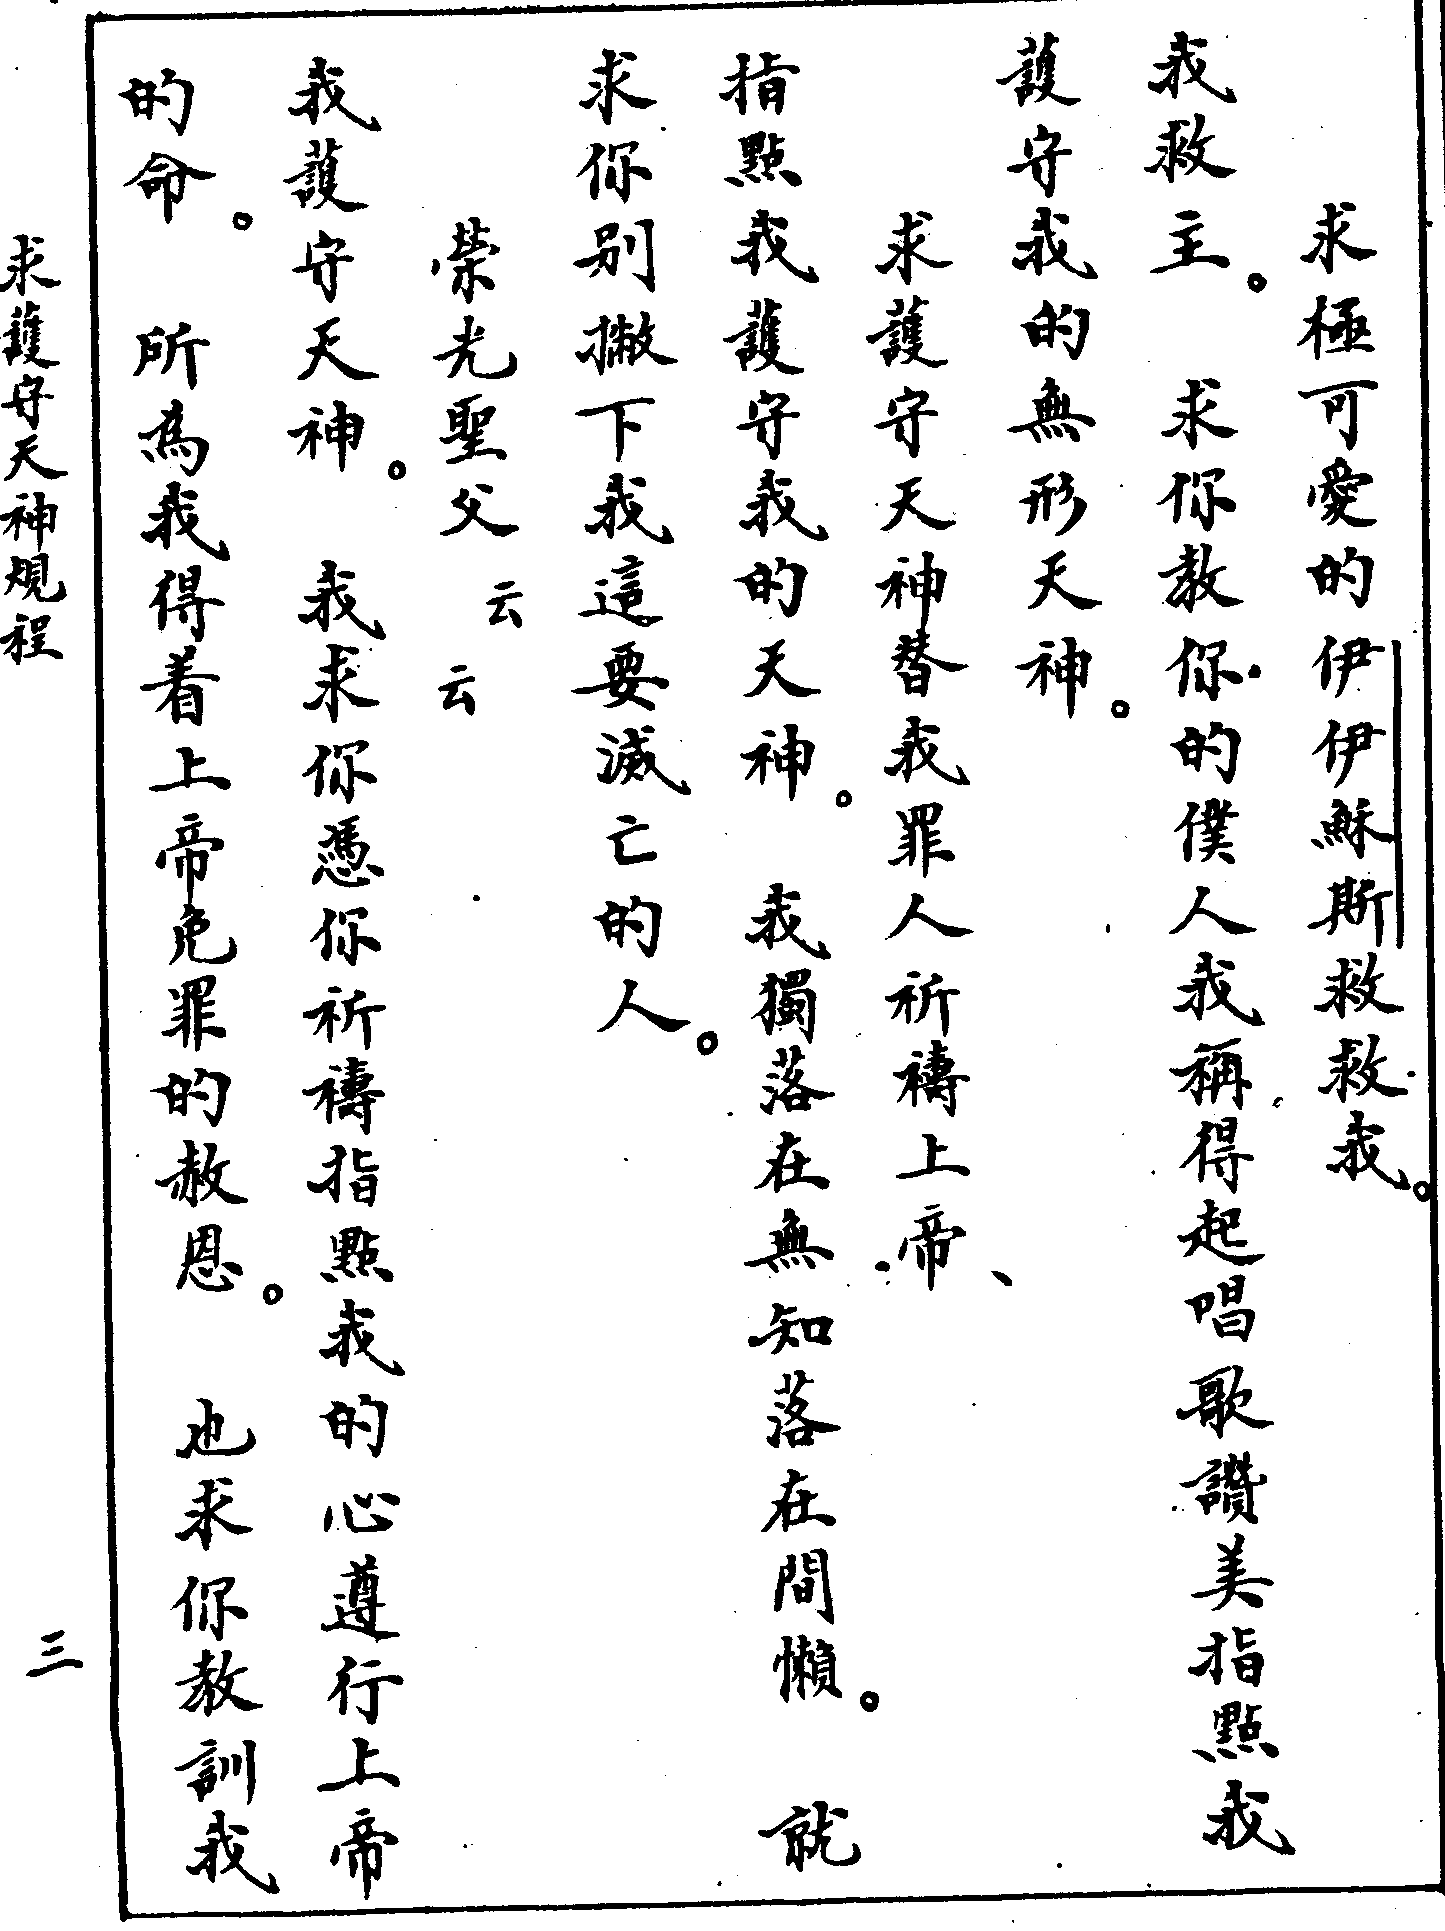 求極可愛的伊伊穌斯救救我。
我救主。　求你教你的僕人我稱得起唱歌讚美指點我
護守我的無形天神。
求護守天神替我罪人祈禱上帝、
指點我護守我的天神。　我獨落在無知落在間懶。　就
求你別撇下我這要滅亡的人。
榮光聖父　云云
我護守天神。　我求你憑你祈禱指點我的心遵行上帝
的命。　所為我得着上帝免罪的赦恩。　也求你教訓我
求護守天神規程
三